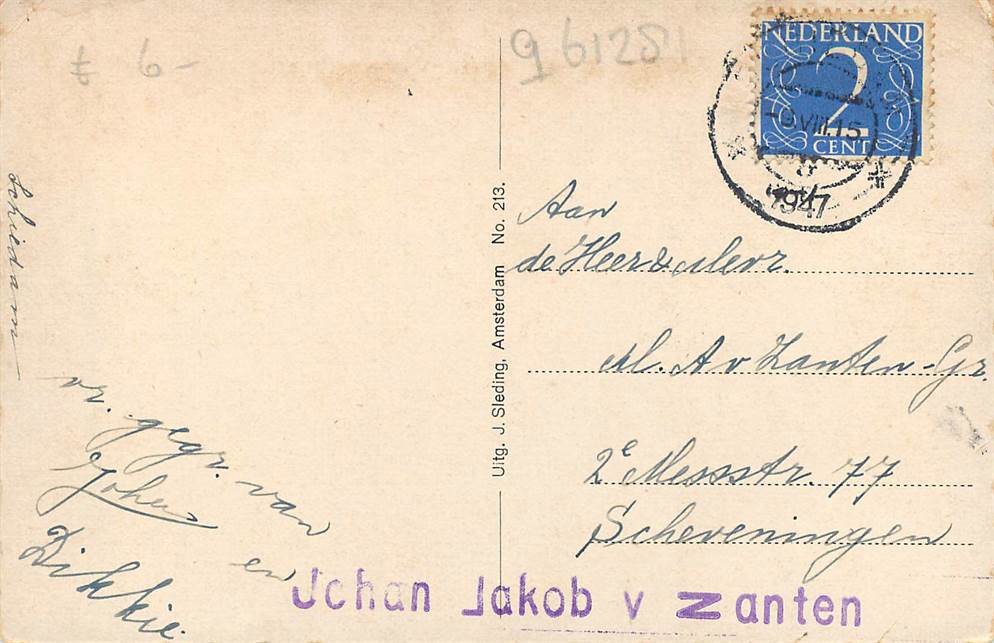 £ 6-
961281
NEDERLAND
2
CENT
-9.VIII.15
1947
Schiedam
vr. gegr. van
Johan
en
Dikkie.
Uitg. J. Sleding, Amsterdam No. 213.
Aan
de Heer & Mevr.
M. A v Zanten-Gr.
2e Messstr. 77
Scheveningen
Johan Jakob v Zanten